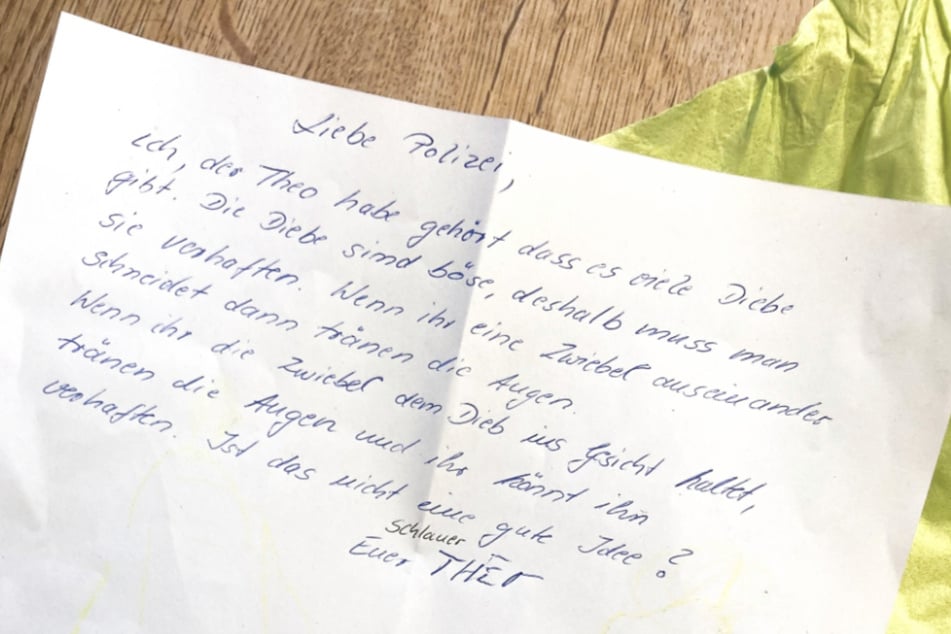 Liebe Polizei,
ich, der Theo habe gehört dass es viele Diebe
gibt. Die Diebe sind böse, deshalb muss man
sie verhaften. Wenn ihr eine Zwiebel auseinander
schneidet dann tränen die Augen.
Wenn ihr die Zwiebel dem Dieb ins Gesicht haltet,
tränen die Augen und ihr könnt ihn
verhaften. Ist das nicht eine gute Idee?
schlauer
Euer THEO